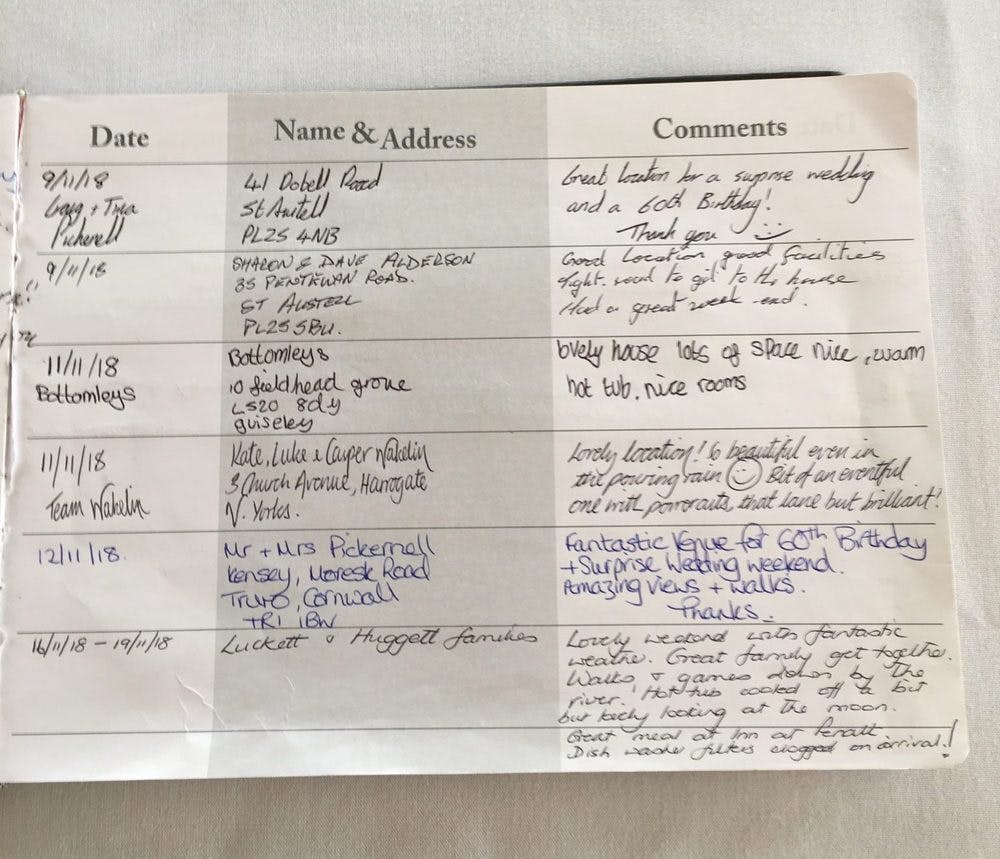 Date Name & Address Comments
9/11/18 41 Dobell Road Great location for a suprise wedding
St Austell and a 60th Birthday!
Pickerell PL25 4NB Thank you
9/11/18 SHARON & DAVE ALDERSON Good Location good facilities
35 PENTEWAN ROAD. tight road to get to the house
ST AUSTELL Had a great week-end.
PL25 5BU.
11/11/18 Bottomleys lovely house lots of space nice, warm
Bottomleys 10 fieldhead grove hot tub, nice rooms
LS20 8dy
guiseley
11/11/18 Kate, Luke & Casper Wakelin Lovely location! So beautiful even in
3 Church Avenue, Harrogate the pouring rain Bit of an eventful
Team Wakelin N. Yorks. one with powercuts, that lane but brilliant!
12/11/18. Mr + Mrs Pickernell Fantastic Venue for 60th Birthday
Kensey, Moresk Road + Surprise Wedding weekend.
Truro, Cornwall Amazing views + walks.
TR1 1BW Thanks.
16/11/18 - 19/11/18 Luckett & Huggett families Lovely weekend with fantastic
weather. Great family get together.
Walks & games down by the
river. Hot tub cooled off a bit
but lovely looking at the moon.
Great meal at Inn at
Dish washer filters clogged on arrival!